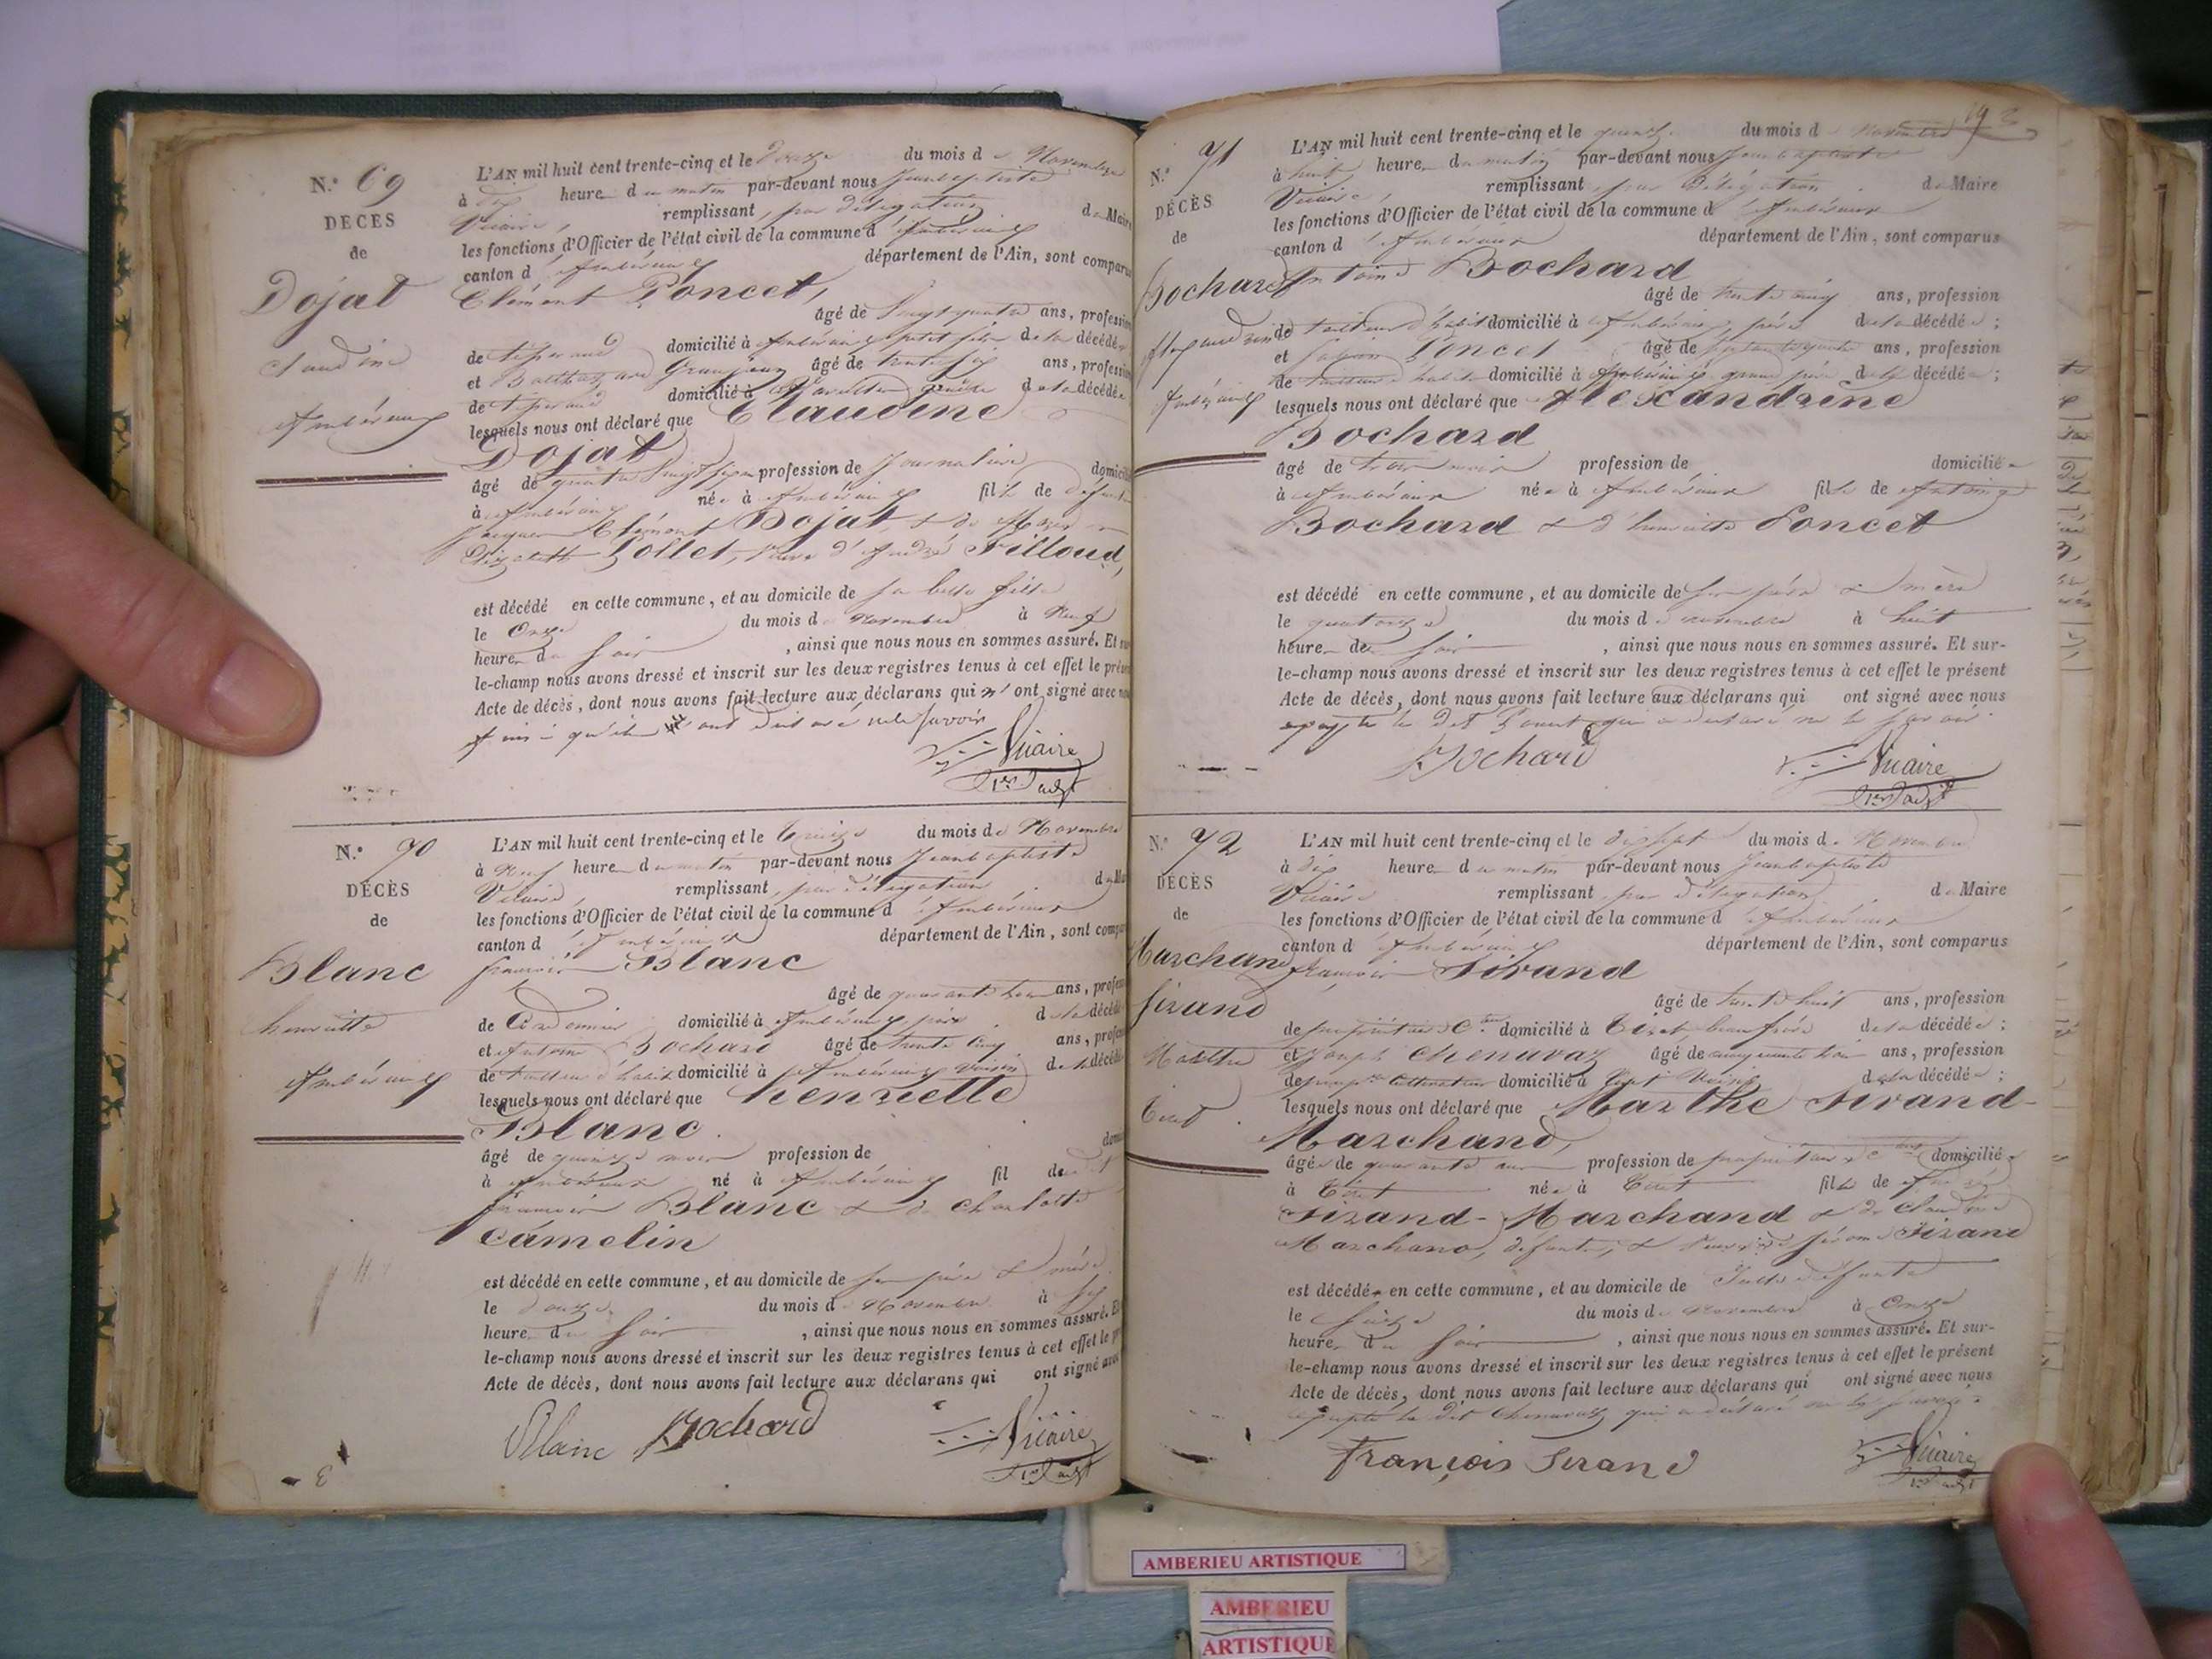 N.º 69
DÉCÈS
de
Dojat
Claudine
Ambérieux
L'AN mil huit cent trente-cinq et le Douze du mois de Novembre
à dix heure du matin par-devant nous Jean baptiste
Vicaire, remplissant, par délégation du Maire
les fonctions d'Officier de l'état civil de la commune d'Ambérieux
canton d'Ambérieux département de l'Ain, sont comparus
Clément Poncet,
âgé de vingt quatre ans, profession
de tisserand domicilié à Ambérieux petit fils de la décédée
et Balthazard Grandjean âgé de trente six ans, profession
de tisserand domicilié à de la décédée
lesquels nous ont déclaré que Claudine
Dojat
âgé de quatre vingt profession de Journalière domicilié
à Ambérieux née à Ambérieux fille de défunts
Jacques Clément Dojat & de
Elizabeth Lollet, veuve d'André Filloud,
est décédé en cette commune, et au domicile de sa belle fille
le Onze du mois de Novembre à Neuf
heure du soir, ainsi que nous nous en sommes assuré. Et sur
le-champ nous avons dressé et inscrit sur les deux registres tenus à cet effet le présent
Acte de décès, dont nous avons fait lecture aux déclarans qui n'ont signé avec nous
qu'ils ont déclaré ne le savoir
Vicaire
N.º 70
DÉCÈS
de
Blanc
henriette
Ambérieux
L'AN mil huit cent trente-cinq et le Treize du mois de Novembre
à Neuf heure du matin par-devant nous Jean baptiste
Vicaire, remplissant, par délégation, du Ma
les fonctions d'Officier de l'état civil de la commune d'Ambérieux
canton d'Ambérieux département de l'Ain, sont compar
françois Blanc
âgé de quarante ans, profes
de Cordonnier domicilié à Ambérieux père de la décédé
et Antoine Bochard âgé de trente cinq ans, profes
de tailleur d'habit domicilié à Ambérieux voisin de la décédé
lesquels nous ont déclaré que henriette
Blanc.
âgé de quinze mois profession de domi
à Ambérieux né à Ambérieux fil de
françois Blanc & de Charlotte
Camelin
est décédé en cette commune, et au domicile de ses père & mère
le douze du mois de Novembre à six
heure du soir, ainsi que nous nous en sommes assuré. Et
le-champ nous avons dressé et inscrit sur les deux registres tenus à cet effet le pr
Acte de décès, dont nous avons fait lecture aux déclarans qui ont signé avec
Blanc Bochard Vicaire
N.º 71
DÉCÈS
de
Bochard
Alexandrine
Ambérieux
L'AN mil huit cent trente-cinq et le quinze du mois de Novembre
à huit heure du matin par-devant nous Jean baptiste
Vicaire, remplissant, par délégation du Maire
les fonctions d'Officier de l'état civil de la commune d'Ambérieux
canton d'Ambérieux département de l'Ain, sont comparus
Antoine Bochard
âgé de trente cinq ans, profession
de tailleur d'habit domicilié à Ambérieux, père de la décédée;
et Poncet âgé de ans, profession
de tailleur d'habit domicilié à Ambérieux grand père de la décédée;
lesquels nous ont déclaré que Alexandrine
Bochard
âgé de trois mois profession de domiciliée
à Ambérieux née à Ambérieux fille de Antoine
Bochard & d'henriette Poncet
est décédé en cette commune, et au domicile de ses père & mère
le quatorze du mois de novembre à huit
heure du soir, ainsi que nous nous en sommes assuré. Et sur-
le-champ nous avons dressé et inscrit sur les deux registres tenus à cet effet le présent
Acte de décès, dont nous avons fait lecture aux déclarans qui ont signé avec nous
excepté le dit Poncet qui a déclaré ne le savoir.
Bochard Vicaire
N.º 72
DÉCÈS
de
Marchand
Sirand
Marthe
Tiret
L'AN mil huit cent trente-cinq et le dix sept du mois de Novembre
à dix heure du matin par-devant nous Jean baptiste
Vicaire remplissant, par délégation, du Maire
les fonctions d'Officier de l'état civil de la commune d'Ambérieux
canton d'Ambérieux département de l'Ain, sont comparus
françois Sirand
âgé de trente huit ans, profession
de propriétaire domicilié à Tiret, beau frère de la décédée;
et Joseph Chenavaz âgé de cinquante trois ans, profession
de cultivateur domicilié à Tiret voisin de la décédée;
lesquels nous ont déclaré que Marthe Sirand-
Marchand,
âgée de quarante profession de propriétaire domiciliée
à Tiret née à Tiret fille de
Sirand-Marchand & de Claudine
Marchand, défunts, & veuve de Jérome Sirand
est décédée en cette commune, et au domicile de
le seize du mois de Novembre à Onze
heure du soir, ainsi que nous nous en sommes assuré. Et sur-
le-champ nous avons dressé et inscrit sur les deux registres tenus à cet effet le présent
Acte de décès, dont nous avons fait lecture aux déclarans qui ont signé avec nous
excepté le dit Chenavaz qui a déclaré ne le savoir.
François Sirand Vicaire
AMBERIEU ARTISTIQUE
AMBERIEU
ARTISTIQUE